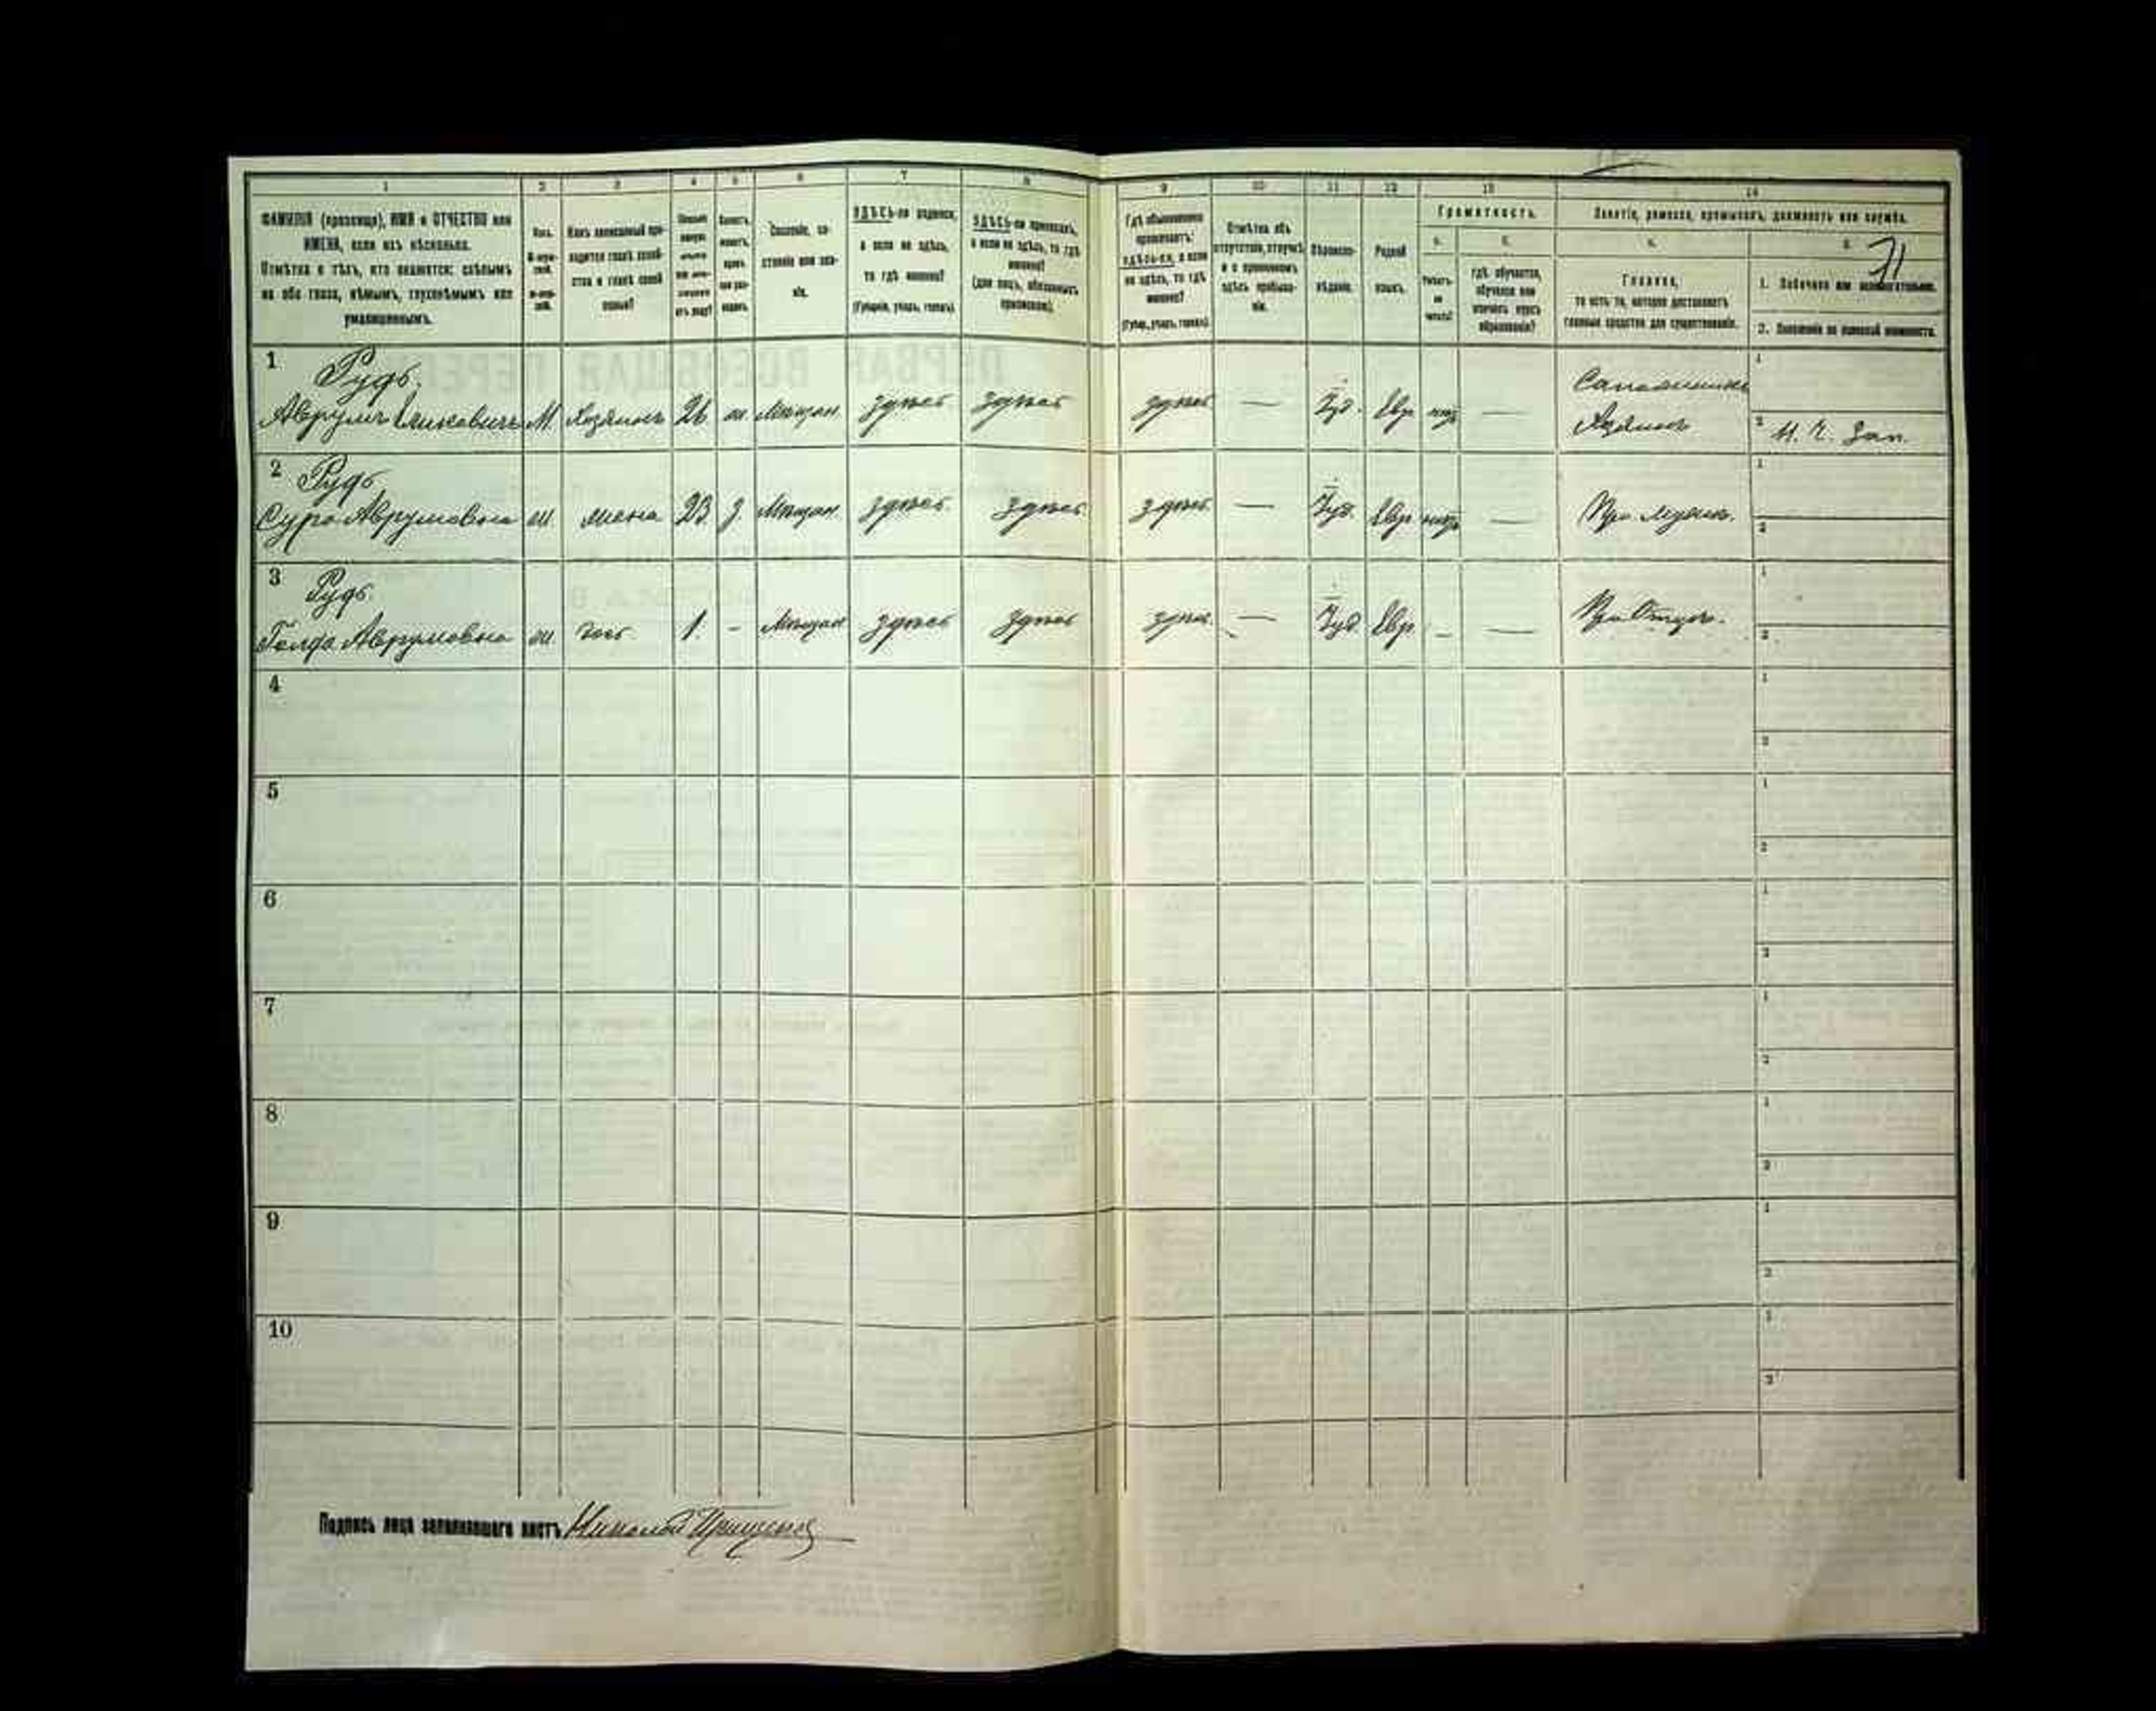 1 2 3 4 5 6 7 8 9 10 11 12 13 14
ФАМИЛІЯ (прозвище), ИМЯ и ОТЧЕСТВО или
ИМЕНА, если ихъ нѣсколько.
Отмѣтка о тѣхъ, кто окажется: слѣпымъ
на оба глаза, нѣмымъ, глухонѣмымъ или
умалишеннымъ.
Какъ записанный приходится главѣ хозяйства и главѣ своей семьи?
Сословіе, состояніе или званіе.
ЗДѢСЬ-ли родился,
а если не здѣсь,
то гдѣ именно?
(Губернія, уѣздъ, городъ).
ЗДѢСЬ-ли приписанъ,
а если не здѣсь, то гдѣ
именно?
(для лицъ, обязанныхъ
припискою).
Гдѣ обыкновенно
проживаетъ:
здѣсь-ли, а если
не здѣсь, то гдѣ
именно?
(Губер., уѣздъ, городъ).
Отмѣтка объ
отсутствіи, отлучкѣ
и о временномъ
здѣсь пребываніи.
Вѣроисповѣданіе.
Родной
языкъ.
Грамотность.
а.
Умѣетъ-
ли
читать?
б.
гдѣ обучается,
обучался или
кончилъ курсъ
образованія?
Занятіе, ремесло, промыселъ, должность или служба.
а.
Главное,
то есть то, которое доставляетъ
главныя средства для существованія.
71
1. Побочное или вспомогательное.
2. Положеніе по воинской повинности.
1 Рудь
Аврумъ М. Хозяинъ 26 ж. Мѣщан. здѣсь здѣсь здѣсь — Іуд. Евр. — Хозяинъ
2 Рудь
Сура Аврумовна ж жена 23 з. Мѣщан. здѣсь здѣсь здѣсь — Іуд. Евр. — При мужѣ.
3 Рудь
Голда Аврумовна ж дочь 1. - Мѣщан здѣсь здѣсь здѣсь — Іуд. Евр. - — При Отцѣ.
4
5
6
7
8
9
10
Подпись лица заполнявшаго листъ Николай